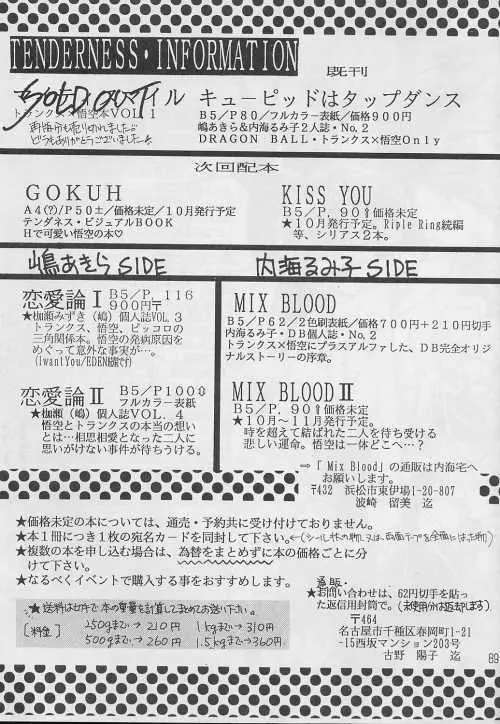 TENDERNESS・INFORMATION
既刊
SOLD OUT
イル
トランクス×悟空本VOL.1
再販分も売り切れました
どうもありがとうございました
キューピッドはタップダンス
B5/P80/フルカラー表紙/価格900円
嶋あきら&内海るみ子2人誌・No.2
DRAGON BALL・トランクス×悟空Only
次回配本
GOKUH
A4(?)/P50±/価格未定/10月発行予定
テンダネス・ビジュアルBOOK
Hで可愛い悟空の本♡
KISS YOU
B5/P.90↑価格未定
★10月発行予定。Riple Ring続編
等、シリアス2本。
嶋あきらSIDE
恋愛論Ⅰ B5/P.116
900円〒
★枷瀬みずき(嶋)個人誌VOL.3
トランクス、悟空、ピッコロの
三角関係本。悟空の発病原因を
めぐって意外な事実が…。
(I want You/EDEN総集です)
恋愛論Ⅱ B5/P100⇕
フルカラー表紙
★枷瀬(嶋)個人誌VOL.4
悟空とトランクスの本当の想い
とは…相思相愛となった二人に
思いがけない事件が待ちうける。
内海るみ子SIDE
MIX BLOOD
B5/P62/2色刷表紙/価格700円+210円切手
内海るみ子・DB個人誌・No.2
トランクス×悟空にプラスアルファした、DB完全オリ
ジナルストーリーの序章。
MIX BLOODⅡ
B5/P.90↑価格未定
★10月~11月発行予定。
時を超えて結ばれた二人を待ち受ける
悲しい運命。悟空は一体どこへ…?
⇒「Mix Blood」の通販は内海宅へ
お願いします。
〒432 浜松市東伊場1-20-807
波崎 留美 迄
★価格未定の本については、通売・予約共に受け付けておりません。
★本1冊につき1枚の宛名カードを同封して下さい。←(シール状の物、又は両面テープを全面にはった物)
★複数の本を申し込む場合は、為替をまとめずに本の価格ごとに分
けて下さい。
★なるべくイベントで購入する事をおすすめします。
★送料は切手で本の重量を計算してまとめてお送り下さい。
[料金] 250gまで→210円 1kgまで→310円
500gまで→260円 1.5kgまで→360円
通販・
★お問い合わせは、62円切手を貼っ
た返信用封筒で。(未使用分は返却します)
〒464
名古屋市千種区春岡町1-21
-15西坂マンション203号
古野 陽子 迄
69